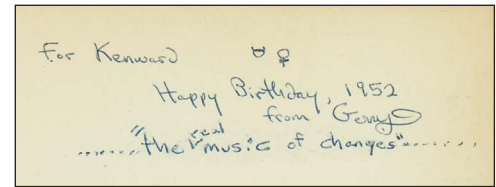 For Kenward ♉ ♀
Happy Birthday, 1952
from Gerry
......."the real music of changes".......